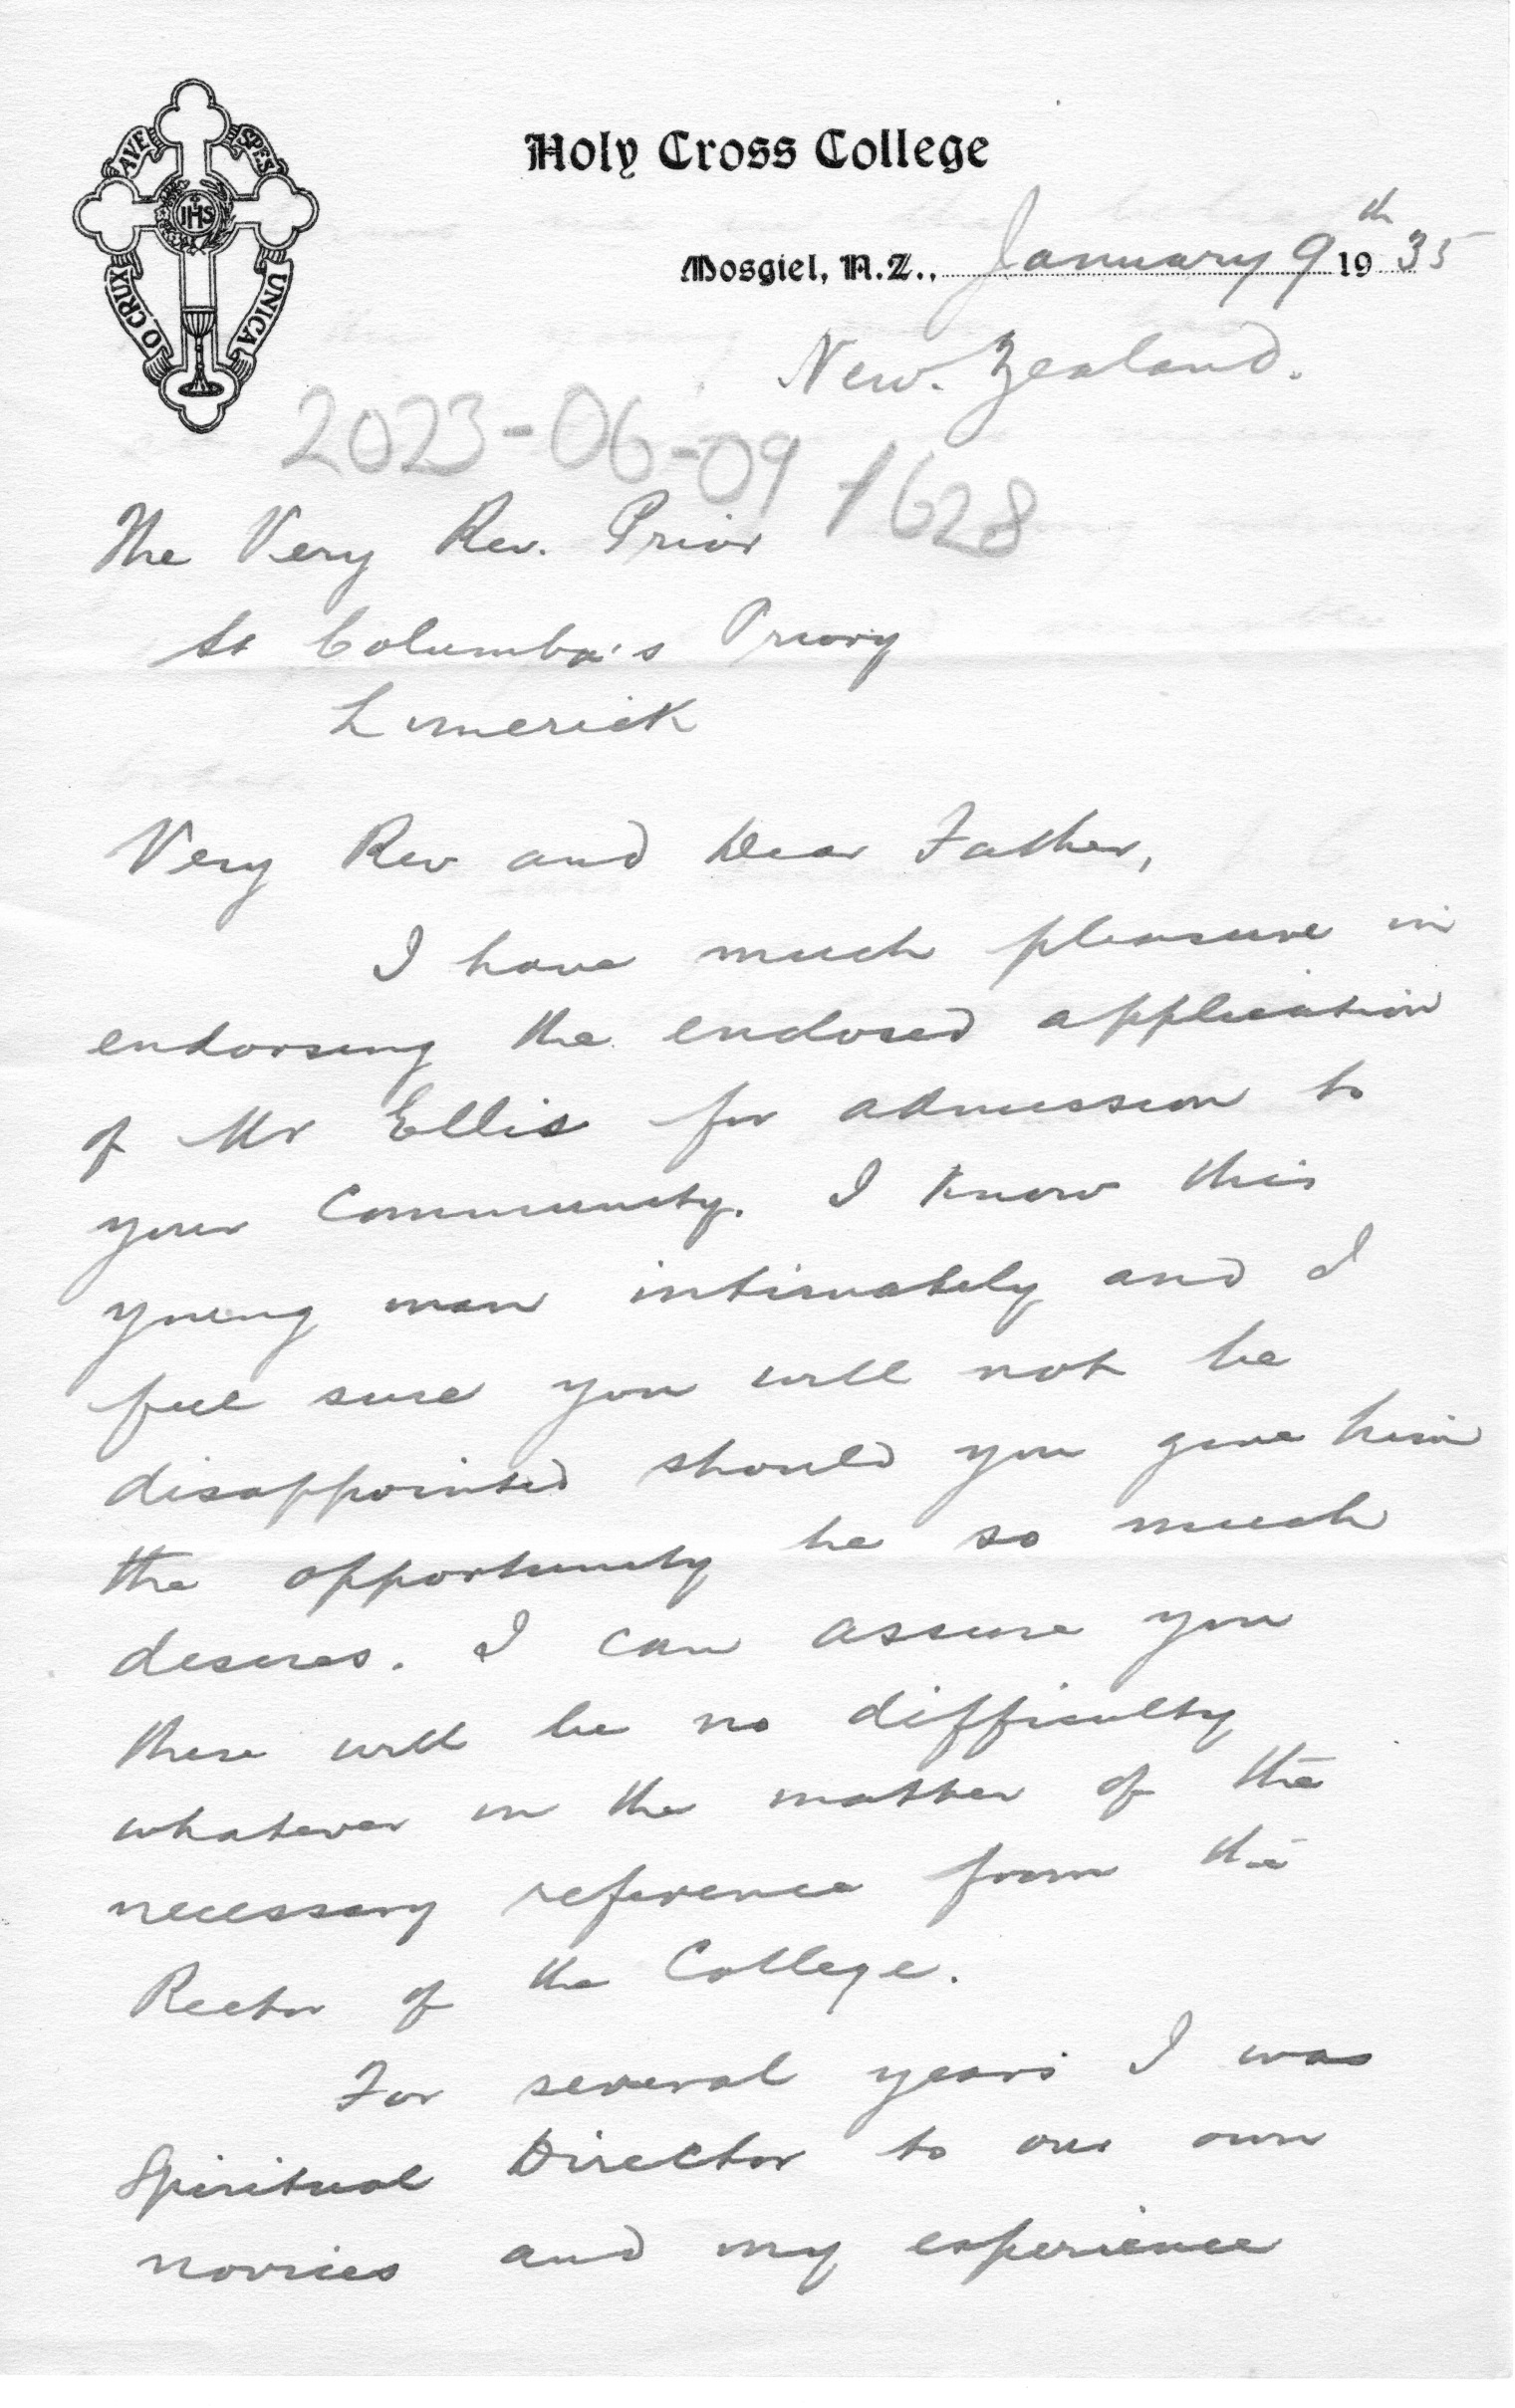 AVE SPES
IHS
O CRUX UNICA
Holy Cross College
Mosgiel, N.Z., January 9th 1935
New. Zealand.
2023-06-09 1628
The Very Rev. Prior
St Columba's Priory
Limerick
Very Rev and Dear Father,
I have much pleasure in
endorsing the enclosed application
of Mr Ellis for admission to
your Community. I know this
young man intimately and I
feel sure you will not be
disappointed should you give him
the opportunity he so much
desires. I can assure you
there will be no difficulty
whatever in the matter of the
necessary reference from the
Rector of the College.
For several years I was
Spiritual Director to our own
novices and my experience